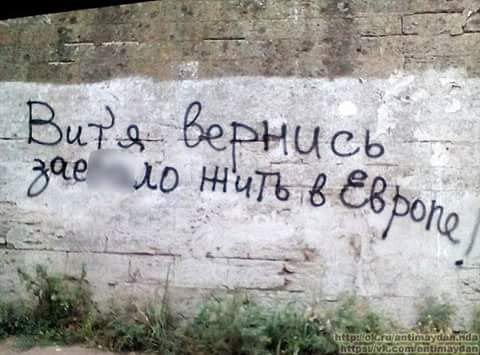 Вит'я вернись
зае ло жить в Европе!
http://ok.ru/antimaydan.nda
https://vk.com/antimaydan